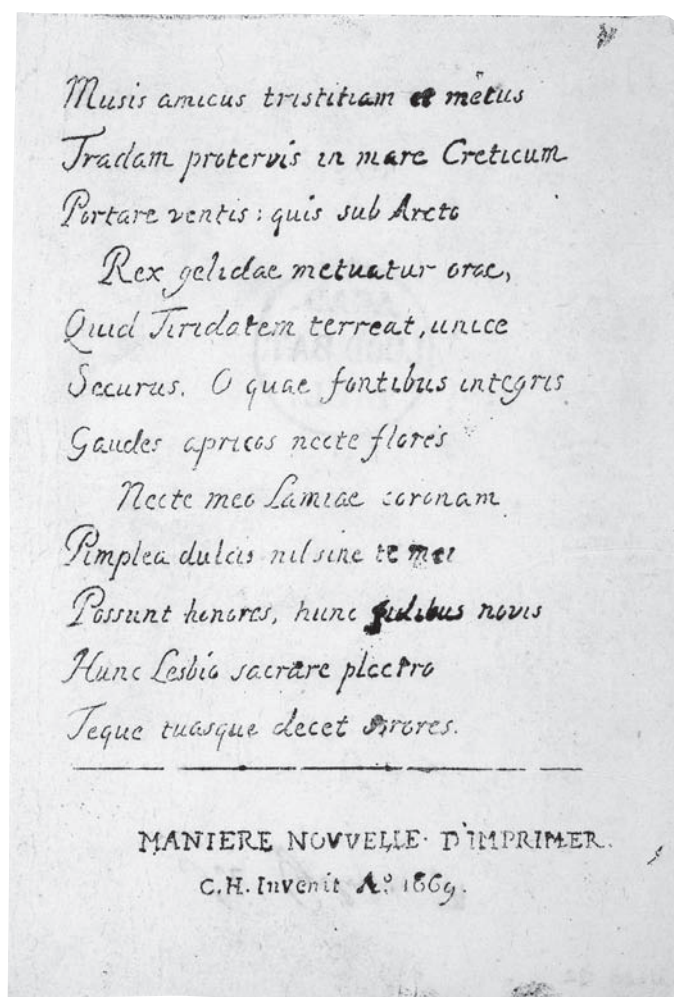 Musis amicus tristitiam et metus
Tradam protervis in mare Creticum
Portare ventis: quis sub Arcto
Rex gelidae metuatur orae,
Quid Tiridatem terreat, unice
Securus. O quae fontibus integris
Gaudes apricos necte flores
Necte meo Lamiae coronam
Pimplea dulcis nil sine te mei
Possunt honores, hunc fidibus novis
Hunc Lesbio sacrare plectro
Teque tuasque decet sorores.
MANIERE NOVVELLE D'IMPRIMER.
C.H. Invenit Aº. 1669.